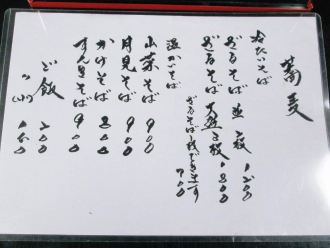 蕎麦
冷たいそば
ざるそば 並 一枚 1200
ざるそば 大盛 2枚 1800
温かいそば
ざるそば一枚できます 700
山菜そば 900
月見そば 900
かけそば 800
すんきそば 900
ご飯 200
〃 小 100